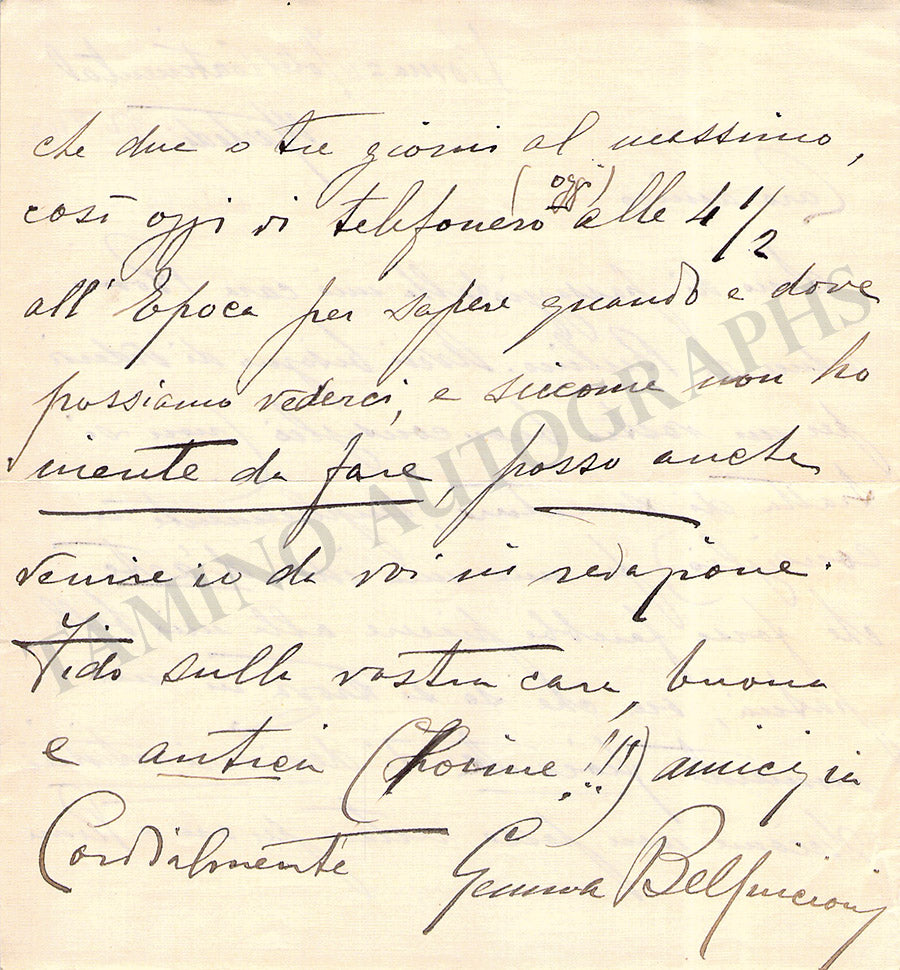 che due o tre giorni al massimo,
così oggi vi telefonerò (oggi) alle 4 1/2
all'Epoca per sapere quando e dove
possiamo vederci, e siccome non ho
niente da fare, posso anche
venire io da voi in redazione.
Fido sulla vostra cara, buona
e antica ( !!!) amicizia
Cordialmente Gemma Bellincioni
TAMINO AUTOGRAPHS